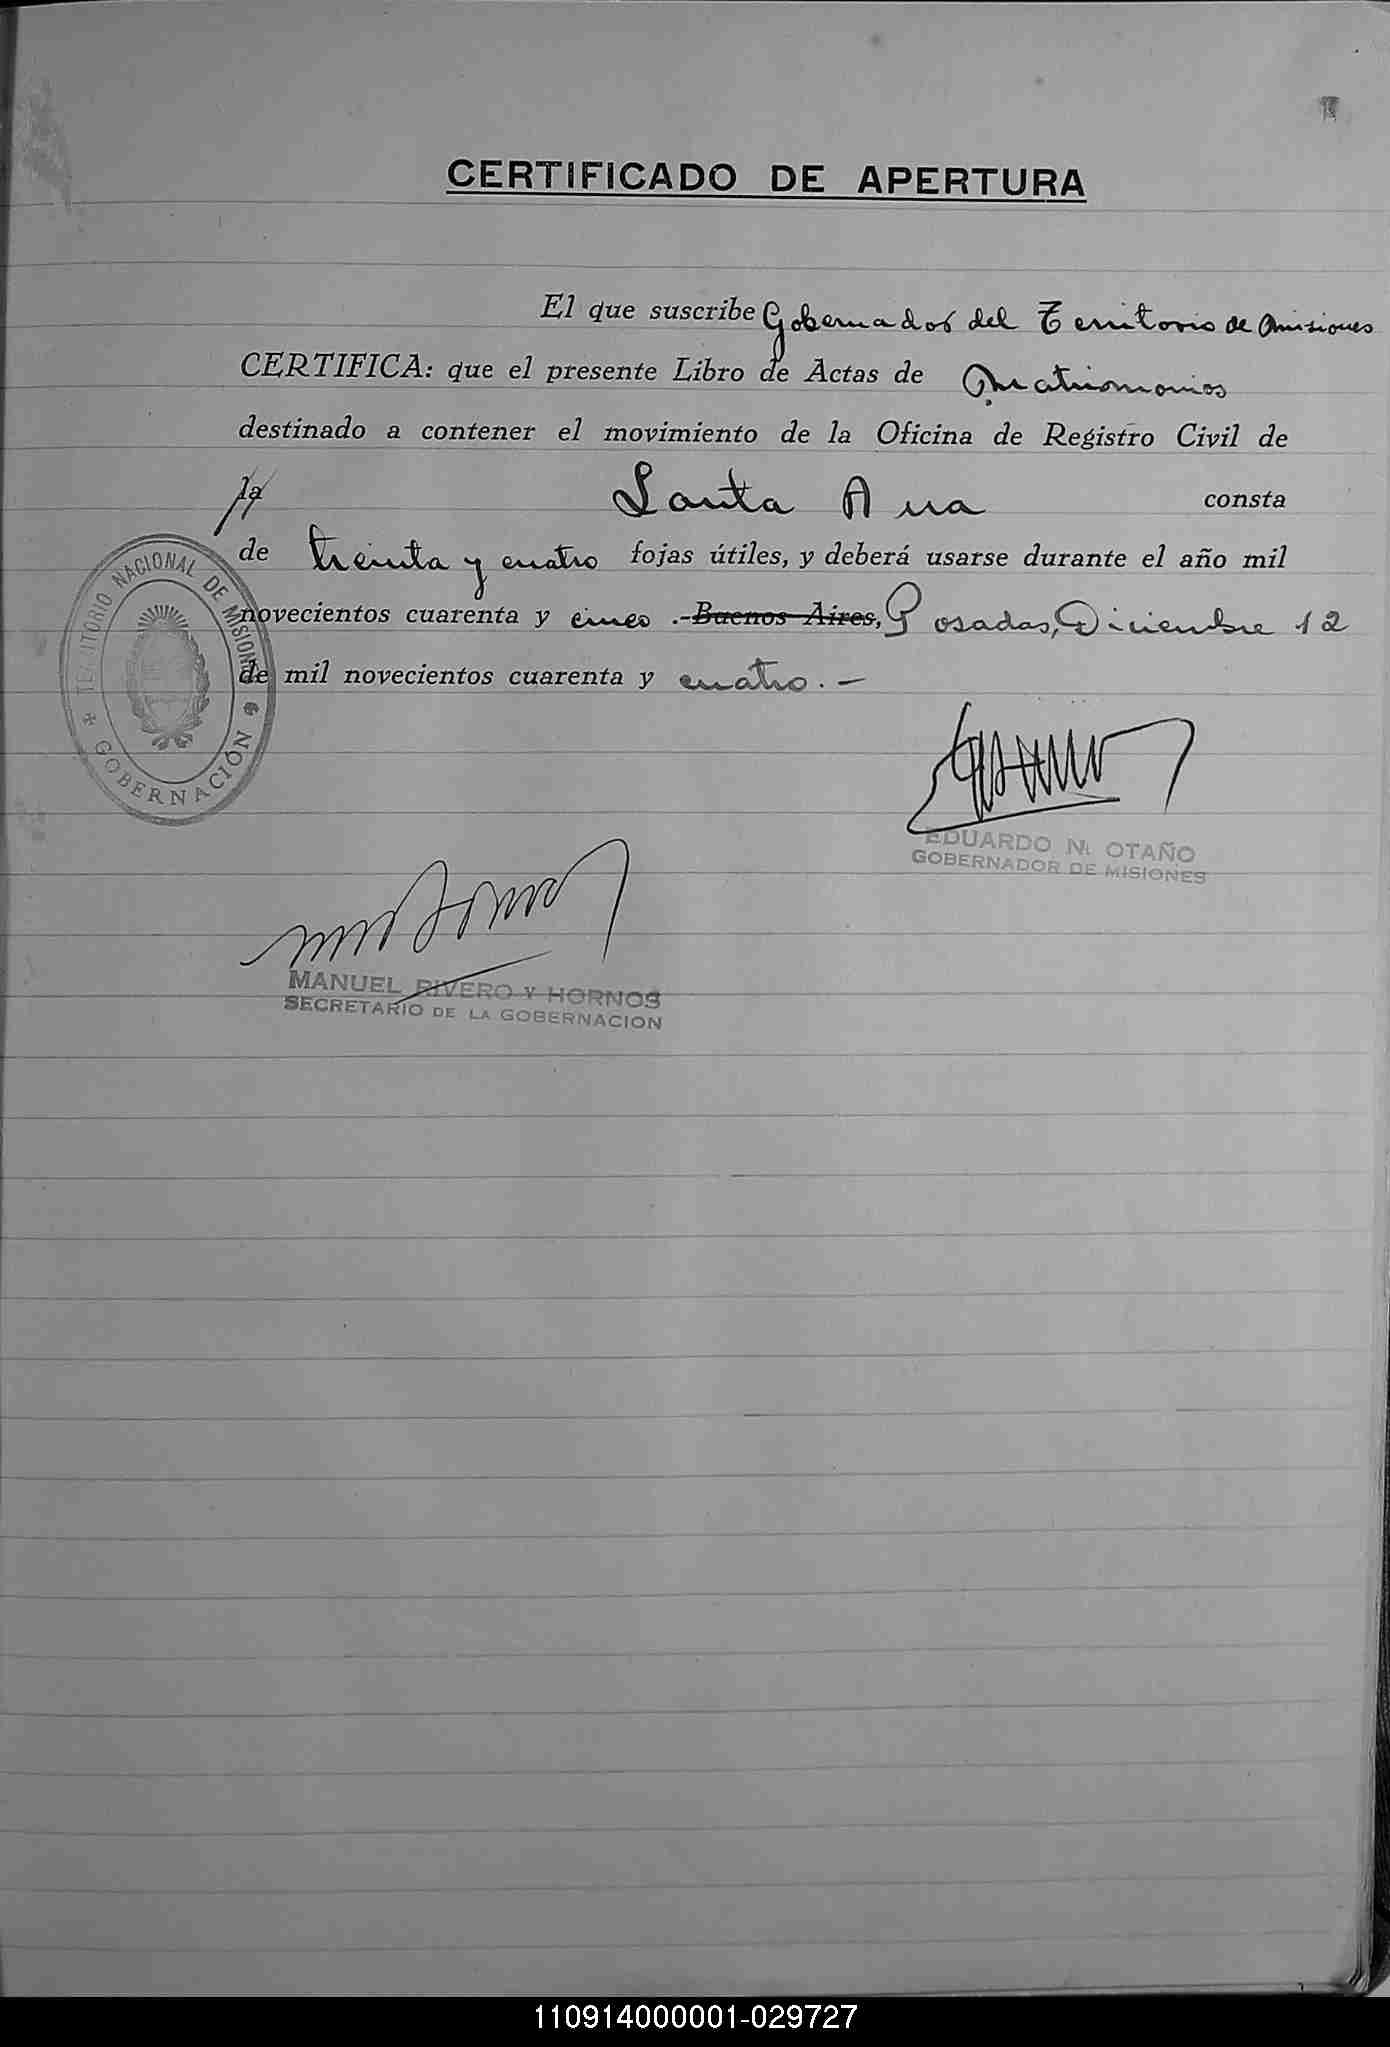 CERTIFICADO DE APERTURA
El que suscribe Gobernador del Territorio de Misiones
CERTIFICA: que el presente Libro de Actas de Matrimonios
destinado a contener el movimiento de la Oficina de Registro Civil de
la Santa Ana consta
de treinta y cuatro fojas útiles, y deberá usarse durante el año mil
novecientos cuarenta y cinco .-Buenos Aires, Posadas, Diciembre 12
de mil novecientos cuarenta y cuatro.-
TERRITORIO NACIONAL DE MISIONES
GOBERNACIÓN
EDUARDO N. OTAÑO
GOBERNADOR DE MISIONES
MANUEL RIVERO Y HORNOS
SECRETARIO DE LA GOBERNACION
110914000001-029727